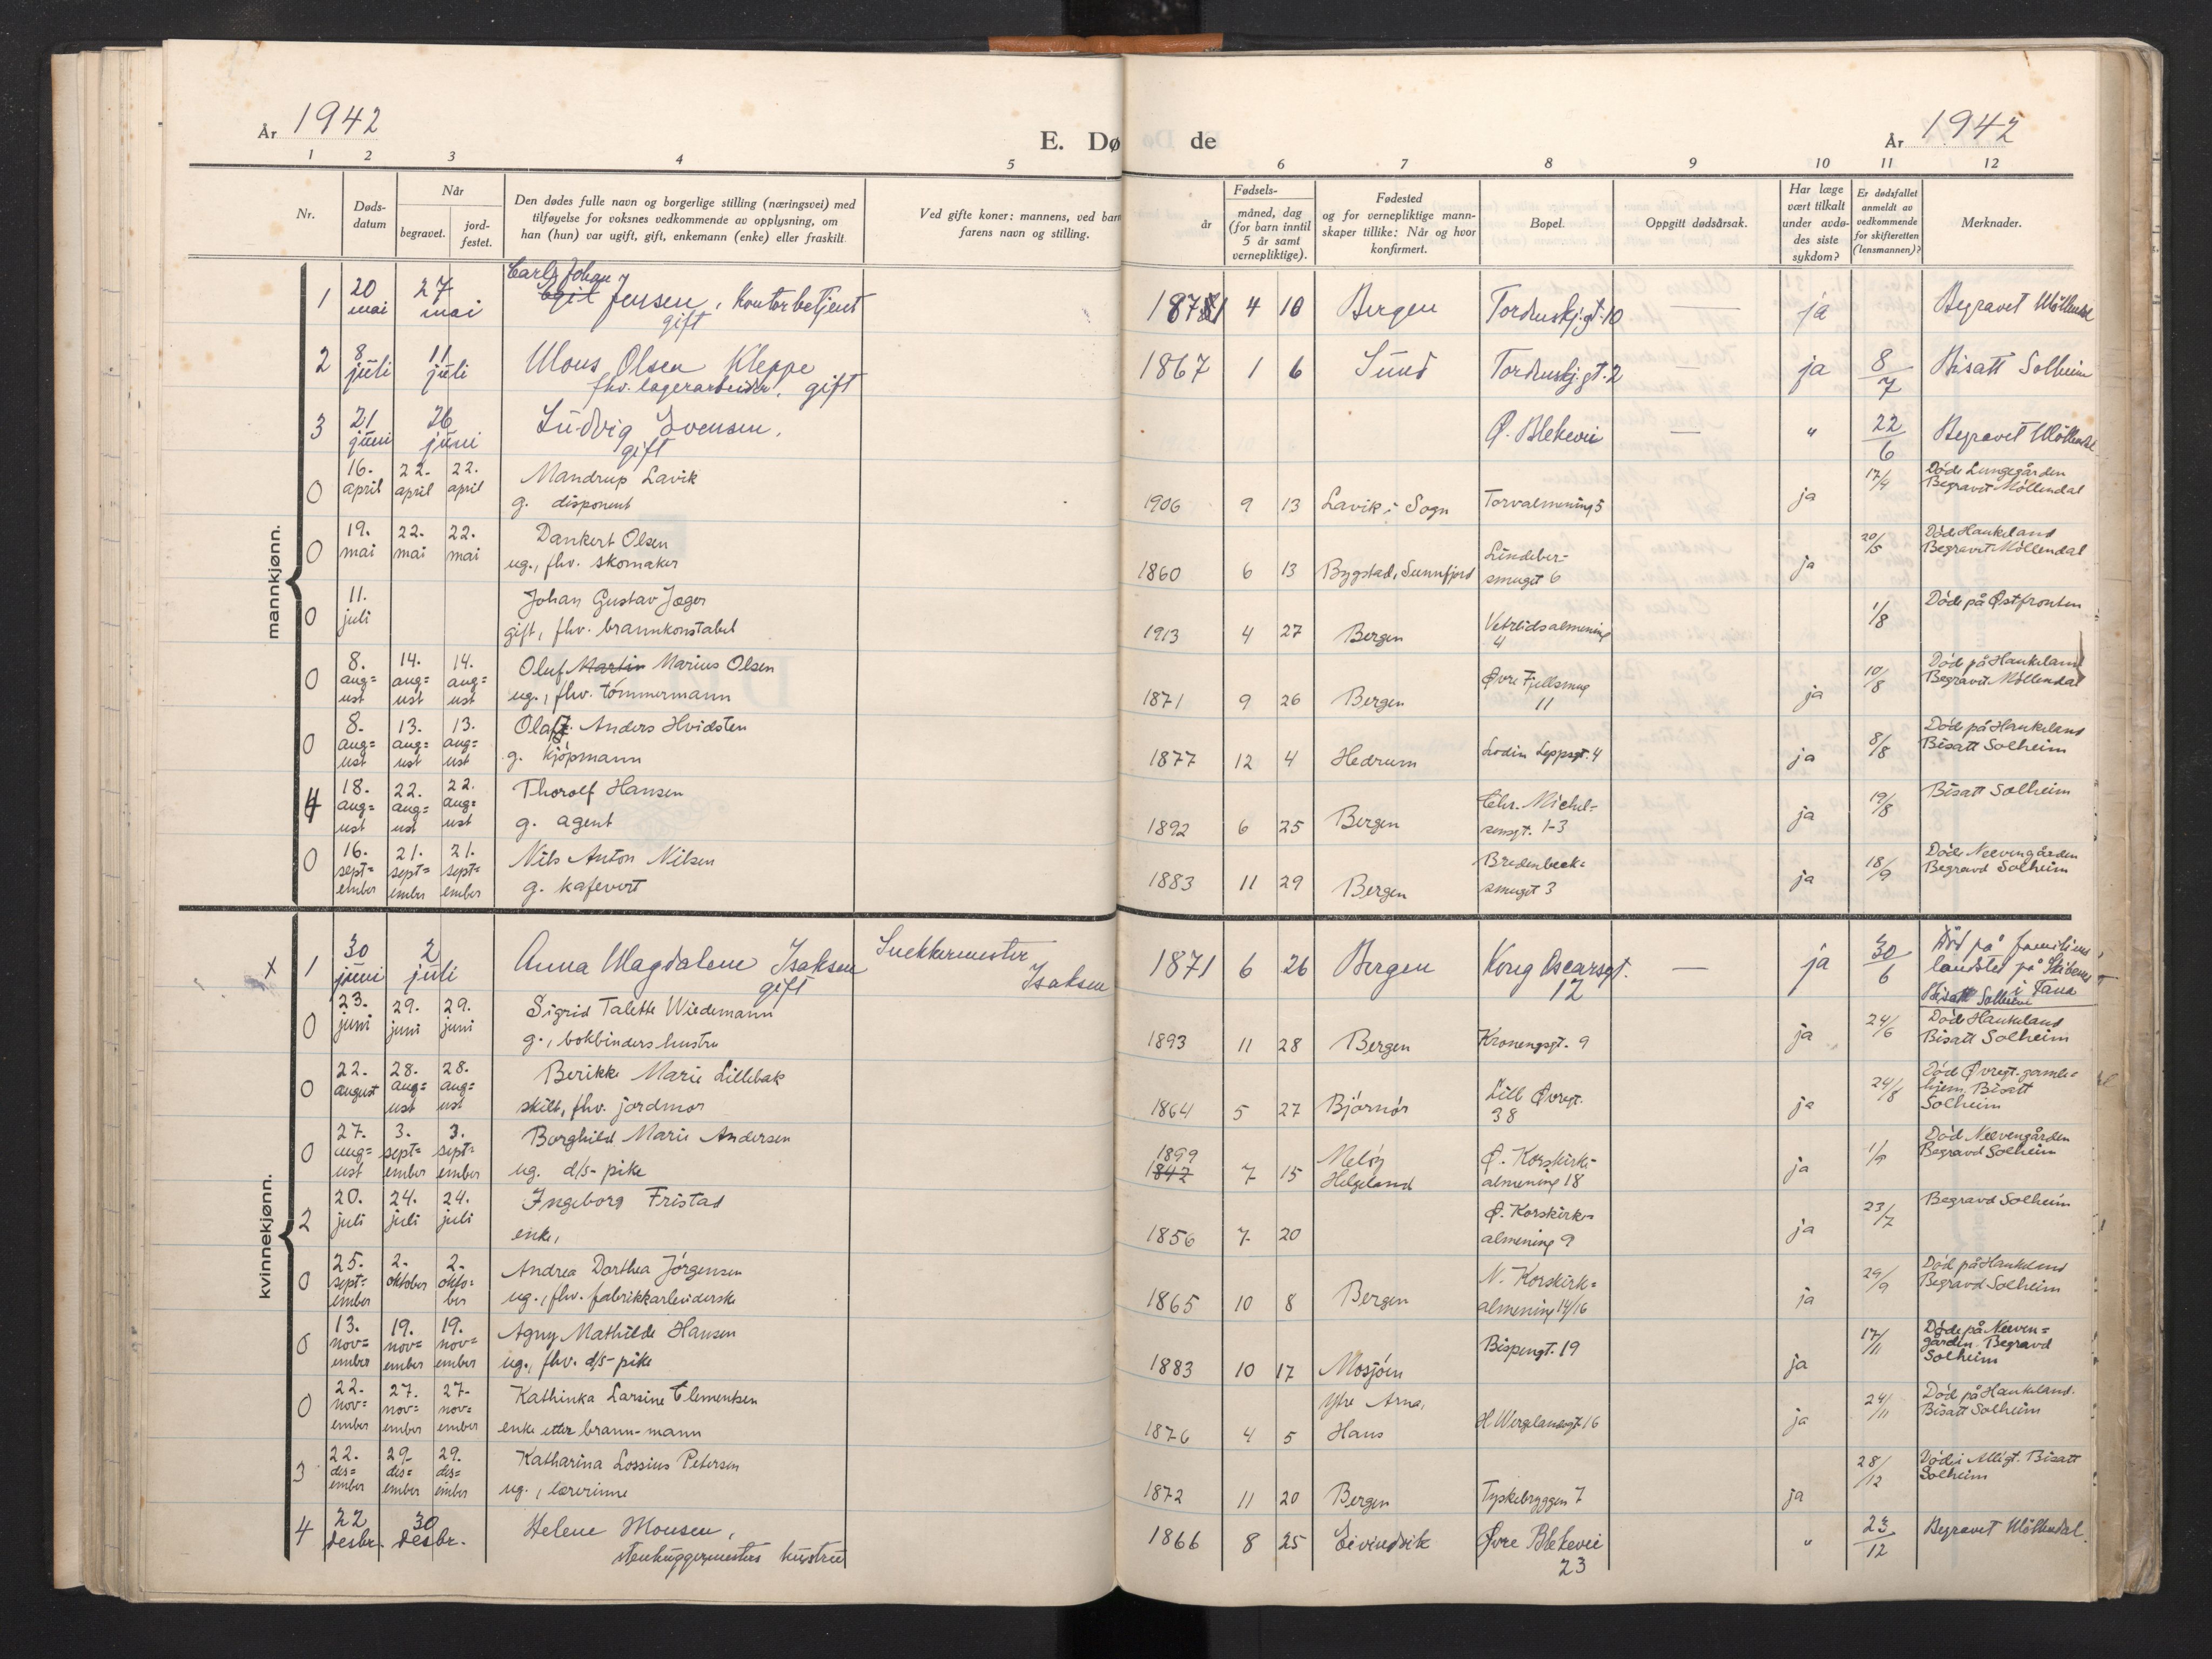 År 1942
E. Døde
År 1942
1 2 3 4 5 6 7 8 9 10 11 12
Nr.
Døds-
datum
Når
begravet.
jord-
festet.
Den dødes fulle navn og borgerlige stilling (næringsvei) med
tilføyelse for voksnes vedkommende av opplysning, om
han (hun) var ugift, gift, enkemann (enke) eller fraskilt.
Ved gifte koner: mannens, ved barn
farens navn og stilling.
Fødsels-
år
måned, dag
(for barn inntil
5 år samt
vernepliktige).
Fødested
og for vernepliktige mann-
skaper tillike: Når og hvor
konfirmert.
Bopel.
Oppgitt dødsårsak.
Har læge
vært tilkalt
under avdø-
des siste
sykdom?
Er dødsfallet
anmeldt av
vedkommende
for skifteretten
(lensmannen)?
Merknader.
mannkjønn.
1 20 mai 27 mai Carl Johan Egil Jensen, Kontorbetjent gift 1871 4 10 Bergen Tordenskj.gt. 10 — ja Begravet Møllendal
2 8 juli 11 juli Mons Olsen Kleppe fhv. lagerarbeider, gift 1867 1 6 Sund Tordenskj.gt. 2 — ja 8/7 Bisatt Solheim
3 21 juni 26 juni Ludvig Svensen, gift Ø. Blekevei — " 22/6 Begravet Møllendal
0 16. april 22. april 22. april Mandrup Lavik g. disponent 1906 9 13 Lavik i Sogn Torvalmening 5 ja 17/4 Døde Lungegården Begravet Møllendal
0 19. mai 22. mai 22. mai Dankert Olsen ug., fhv. skomaker 1860 6 13 Bygstad, Sunnfjord Lindeber- smuget 6 ja 20/5 Død Haukeland Begravet Møllendal
0 11. juli Johan Gustav Jæger gift, fhv. brannkonstabel 1913 4 27 Bergen Vetrlidsalmening 4 1/8 Døde på Østfronten
0 8. aug= ust 14. aug= ust 14. aug= ust Oluf Martin Marius Olsen ug., fhv. tømmermann 1871 9 26 Bergen Øvre Fjellsmug 11 ja 10/8 Død på Haukeland Begravet Møllendal
0 8. aug= ust 13. aug= ust 13. aug= ust Olaf Anders Hvidsten g. kjøpmann 1877 12 4 Hedrum Lodin Leppsgt. 4 ja 8/8 Død på Haukeland Bisatt Solheim
4 18. aug= ust 22. aug= ust 22. aug= ust Thorolf Hansen g. agent 1892 6 25 Bergen Chr. Michel- sensgt. 1-3 ja 19/8 Bisatt Solheim
0 16. sept= ember 21. sept= ember 21. sept= ember Nils Anton Nilsen g. kafevert 1883 11 29 Bergen Bredenbeck= smuget 3 ja 18/9 Døde Neevengården Begravd Solheim
kvinnekjønn.
x 1 30 juni 2 juli Anna Magdalene Isaksen gift Snekkermester Isaksen 1871 6 26 Bergen Kong Oscarsgt. 12 — ja 30/6 Død på familiens landsted på i Fana Bisatt Solheim
0 23. juni 29. juni 29. juni Sigrid Talette Wiedemann g., bokbinders hustru 1893 11 28 Bergen Kronengsgt. 9 ja 24/6 Døde Haukeland Bisatt Solheim
0 22. august 28. aug= ust 28. aug= ust Berikke Marie Lillebak skilt, fhv. jordmor 1864 5 27 Bjørnør Lille Øvregt. 38 ja 24/8 Død Øvregt. gamle= hjem, Bisatt Solheim
0 27. aug= ust 3. sept= ember 3. sept= ember Borghild Marie Andersen ug. d/s-pike 1899 1842 7 15 Meløy Helgeland Ø. Korskirke- almening 18 ja 1/9 Død Neevengården Begravd Solheim
2 20. juli 24. juli 24. juli Ingeborg Fristad enke, 1856 7 20 Ø. Korskirke- almening 9 ja 23/7 Begravd Solheim
0 25. sept= ember 2. oktober 2. okto= ber Andrea Dorthea Jørgensen ug., fhv. fabrikkarbeiderske 1865 10 8 Bergen N. Korskirk= almening 14/16 ja 29/9 Død på Haukeland Begravd Solheim
0 13. nov= ember 19. nov= ember 19. nov= ember Agny Mathilde Hansen ug., fhv. d/s-pike 1883 10 17 Mosjøen Bispengt. 19 ja 17/11 Døde på Neeven= gården. Begravd Solheim
0 22. nov= ember 27. nov= ember 27. nov= ember Kathinka Larsine Clementsen enke etter brann-mann 1876 4 5 Ytre Arna, Haus H. Wergelandsgt. 16 ja 24/11 Død på Haukeland. Bisatt Solheim
3 22. des= ember 29. des= ember 29. des= ember Katharina Lossius Petersen ug., lærerinne 1872 11 20 Bergen Tyskebryggen 7 ja 28/12 Døde i Allégt. Bisatt Solheim
4 22 desbr. 30 desbr. Helene Monsen, stenhuggermesters hustru 1866 8 25 Eivindvik Øvre Blekevei 23 " 23/12 Begravet Møllendal.